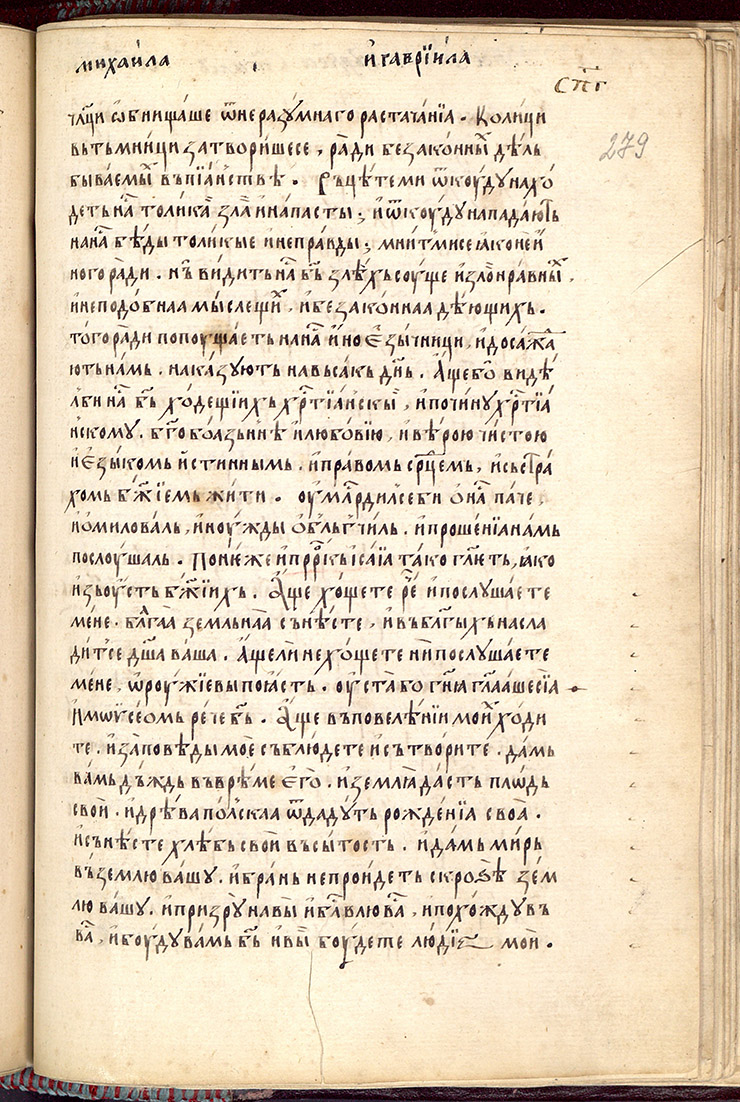 михаи́ла и҆гаврїи́ла
сп҃г
279
чл҃ци ѡ҆бнища́ше ѿнеразꙋ́мнаго растача́нїа . Коли́ци
вьтьмни́ци затвори́шесе , ра́ди беꙁако́нныⷯ дѣ́ль
быва́емыⷯ вьпїа́ньствѣ . Рьцѣ́теми ѿкоу́дꙋ нахо́
деть на́ⷭ толи́каⷽ ꙁла́ и҆напа́сты ; и҆ѿкоу́дꙋ напада́ють
нана́ⷭ бѣ́ды толи́кые и҆непра́вды ; мни́тмисе ꙗ҆коне и҆́
ного ра́ди . нь ви́дить на́ⷭ бь҃ ꙁлѣ́хь соу́ще и҆ꙁлонра́вныⷯ ,
и҆неподо́бнаа мы́слещиⷯ , и҆беꙁако́ннаа дѣ́ющихь .
того̀ ра́ди попоуща́еть нана́ⷭ и҆ноѥꙁы́чници , и҆досажа́
ють на́мь . нака́ꙁꙋють навьса́кь дн҃ь . А҆́щебо ви́дѣ
лби на́ⷭ бь҃ хо́дещїихь хрⷭ҇тїа́нскыⷯ , и҆почи́нꙋ хрⷭ҇тїа́
нскомꙋ . б҃гобоꙗ́ꙁьнїѣ и҆любо́вїю , и҆вѣ́рою чи́стою
и҆ѥꙁы́комь и҆́стиннымь . и҆пра́вомь срⷣцемь , и҆сьстра́
хомь бж҃їемь жи́ти . оу҆млⷭ҇рдилсеби ѡ҆на́ⷭ па́че ,
и҆поми́ловаль , и҆ноу́жды ѡ҆бльгчи́ль . и҆проше́нїа на́мь
послоу́шаль . Поне́же и҆прⷪ҇ркь і҆са́їа та́ко гл҃ѥть , ꙗ҆́ко
и҆ꙁьоу́сть бж҃їихь . А҆́ще хо́щете рⷱ҇е и҆послꙋ́шаете
ме́не . бл҃га́а ꙁемльна́а сьнѣ́сте , и҆вьбл҃гы́хь насла
ди́тсе дш҃а ва́ша . А҆́щели не хо́щете ни послꙋ́шаете
ме́не , ѡ҆роу́жїе вы поꙗ́сть . оу҆ста́ бо гн҃ꙗ гл҃аа́ше сїа̀
и҆мѡѵсе́омь рече бь҃ . А҆́ще вьповелѣ́нїи мое́ⷨ хо́ди
те . и҆ꙁа́повѣды моѐ сьблюде́те и҆сьтво́рите . да́мь
ва́мь дь́ждь вьврѣ́ме е҆го̀ . и҆ꙁемлꙗ̀ да́сть плѡ́дь
сво́й . и҆дрѣ́ва по́лскаа ѿдадꙋ́ть рожде́нїа своа̀ .
и҆сьнѣ́сте хлѣ́бь сво́й вьсы́тость . и҆да́мь ми́рь
вьꙁе́млю ва́шꙋ . и҆бра́нь непро́йдеть скроꙁѣ̀ ꙁе́м
лю ва́шꙋ . и҆при́ꙁрꙋ навы̀ и҆бл҃влю ва́ⷭ , и҆похо́ждꙋ вь
ва́ⷭ , и҆боу́дꙋ ва́мь бь҃ и҆вы̀ боу́дете лю́дїе мо́и .